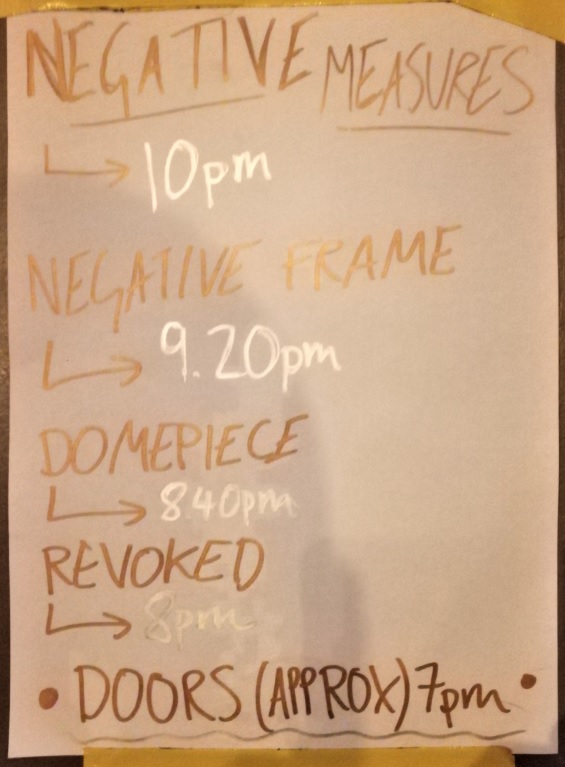 NEGATIVE MEASURES
10pm
NEGATIVE FRAME
9.20pm
DOMEPIECE
8.40pm
REVOKED
8pm
• DOORS (APPROX) 7pm •